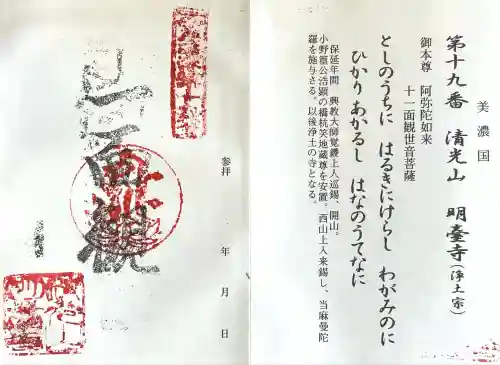 美濃国
第十九番 清光山 明臺寺(浄土宗)
御本尊 阿弥陀如来
十一面観世音菩薩
としのうちに はるきにけらし わがみのに
ひかり あかるし はなのうてなに
保延年間、興教大師覚鑁上人巡錫、開山。
小野篁公浩顕の橋杭笑地蔵尊を安置。西山上人来錫し、当麻曼陀
羅を施与さる。以後浄土の寺となる。
参拝 年 月 日
十一面観